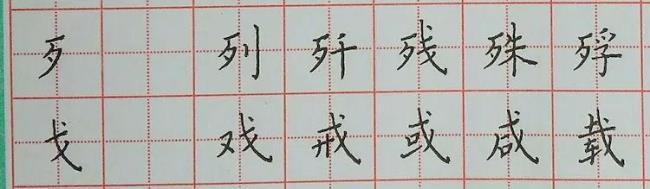 歹 列 歼 残 殊 殍
戈 戏 戒 或 咸 载